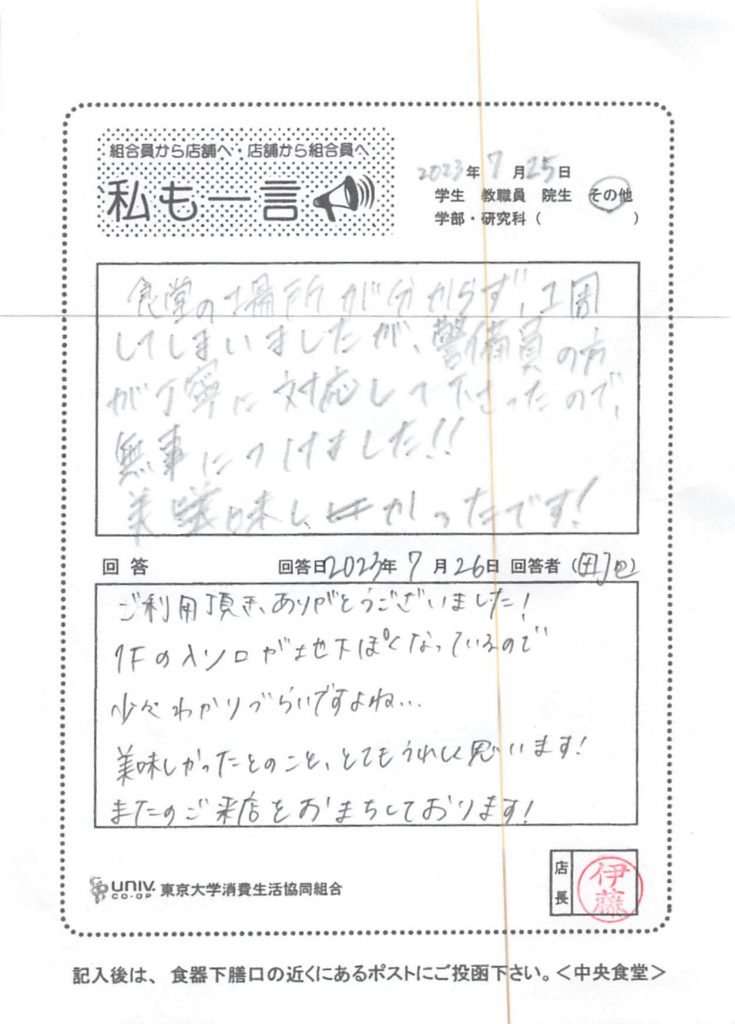 組合員から店舗へ・店舗から組合員へ
私も一言
2023年 7月 25日
学生 教職員 院生 その他
学部・研究科( )
食堂の場所が分からず、1周
してしまいましたが、警備員の方
が丁寧に対応して下さったので、
無事につけました!!
美味しかったです!
回答 回答日2023年 7月 26日 回答者 (田)
ご利用頂き、ありがとうございました!
1Fの入り口が地下ぽくなっているので
少々わかりづらいですよね…
美味しかったとのこと、とてもうれしく思います!
またのご来店をおまちしております!
UNIV. CO-OP 東京大学消費生活協同組合
店長 伊藤
記入後は、食器下膳口の近くにあるポストにご投函下さい。<中央食堂>